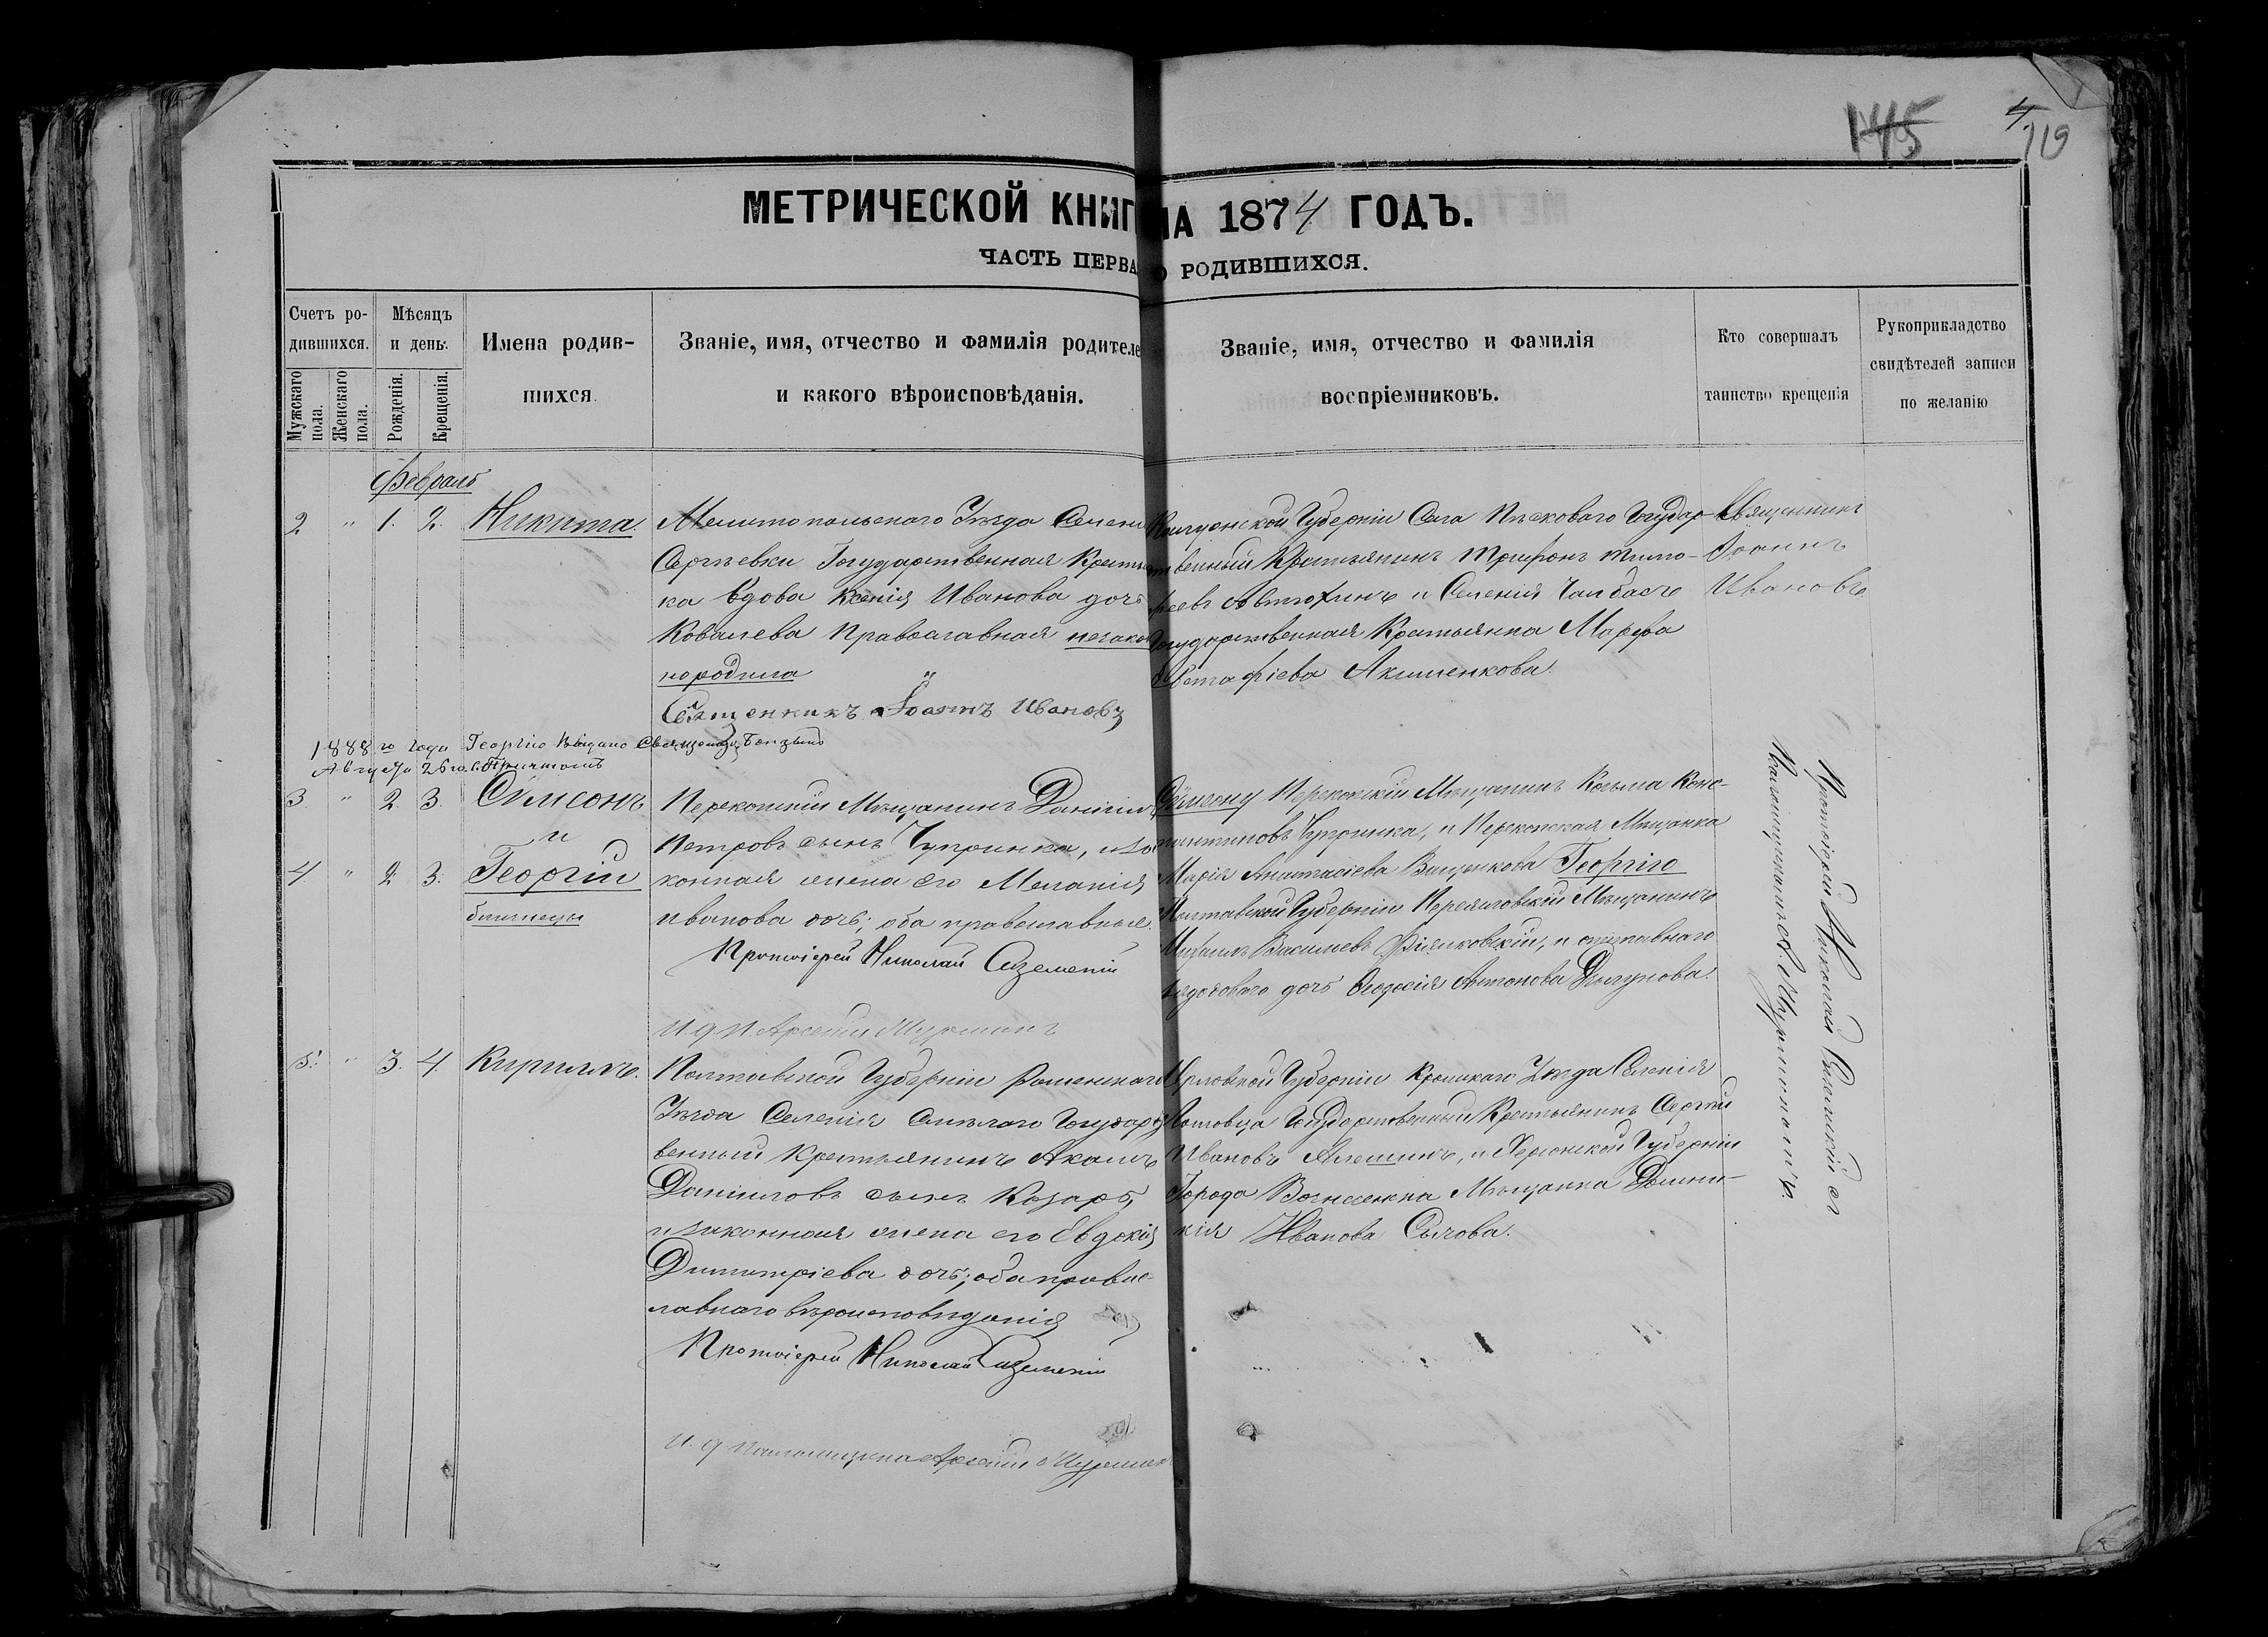 145
4
119
МЕТРИЧЕСКОЙ КНИГ НА 1874 ГОДЪ.
ЧАСТЬ ПЕРВА О РОДИВШИХСЯ.
Счетъ ро-
дившихся.
Мужскаго пола.
Женскаго пола.
Мѣсяцъ
и день.
Рожденія.
Крещенія.
Имена родив-
шихся.
Званіе, имя, отчество и фамилія родителе
и какого вѣроисповѣданія.
Званіе, имя, отчество и фамилія
воспріемниковъ.
Кто совершалъ
таинство крещенія
Рукоприкладство
свидѣтелей записи
по желанію
Февраль
2 " 1. 2. Никита.
Мелитопольскаго Уѣзда Селені
Сергѣевки Государственная Крестья
ка вдова Ксенія Иванова дочь
Ковалева Православная незако
но родила
Священникъ Іоаннъ Ивановъ
Губерніи Села Пѣсковаго Государ-
твенный Крестьянинъ Трифонъ Тимо-
феевъ и Селенія
Государственная Крестьянка Марфа
Евстафіева Акименкова.
Священникъ
Іоаннъ
Ивановъ
1888 го года Георгію выдано
Августа 26 го
3. " 2. 3. Симеонъ
и
4 " 2. 3. Георгій
близнецы
Перекопскій Мѣщанинъ Даніилъ
Петровъ сынъ Чупринка, и за
конная жена его Меланія
Иванова дочь; оба православные.
Протоіерей Николай
И. д. п. Арсеній
Симеону Перекопскій Мѣщанинъ Козьма Конс-
тантиновъ Чупринка, и Перекопская Мѣщанка
Марія Анастасіева Георгію
Полтавской Губерніи Переяловскій Мѣщанинъ
Михаилъ Васильевъ и отставнаго
рядоваго дочь Ѳеодосія Антонова
Протоіерей Николай съ
5. " 3. 4. Кириллъ.
Полтавской Губерніи Роменскаго
Уѣзда Селенія Смѣлаго Государст
венный Крестьянинъ Акимъ
Данииловъ сынъ Козаръ,
и законная жена его Евдокія
Димитріева дочь; оба правос-
лавнаго вѣроисповѣданія
Протоіерей Николай
И. д. Арсеній
Орловской Губерніи Кромскаго Уѣзда Селенія
Государственный Крестьянинъ Сергѣй
Ивановъ Алешинъ, и Херсонской Губерніи
Города Вознесенска Мѣщанка Домни-
кія Иванова Сычова.